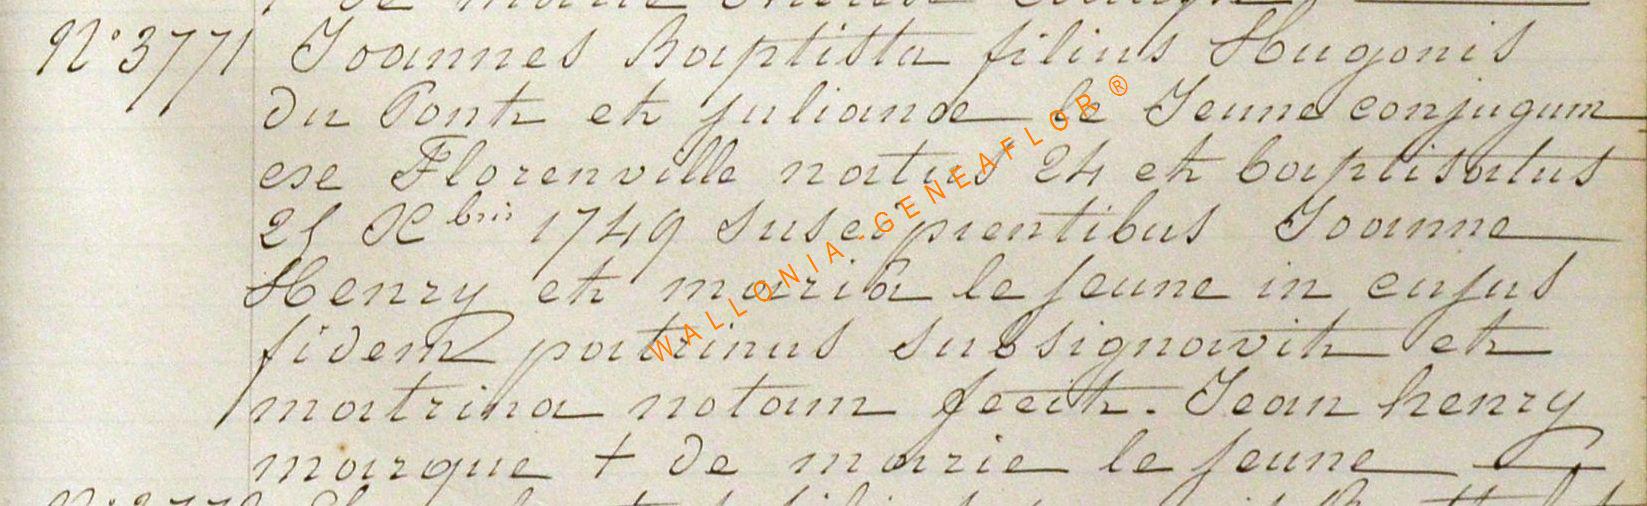 N° 3771 Joannes Baptista filius Hugonis
du Pont et julianae le Jeune conjugum
ex Florenville natus 24 et baptisatus
25 Xbris 1749 suscipientibus Joanne
Henry et maria le jeune in cujus
fidem patrinus subsignavit et
matrina notam fecit. Jean henry
marque + de marie le jeune
WALLONIA-GENEAFLOR ®